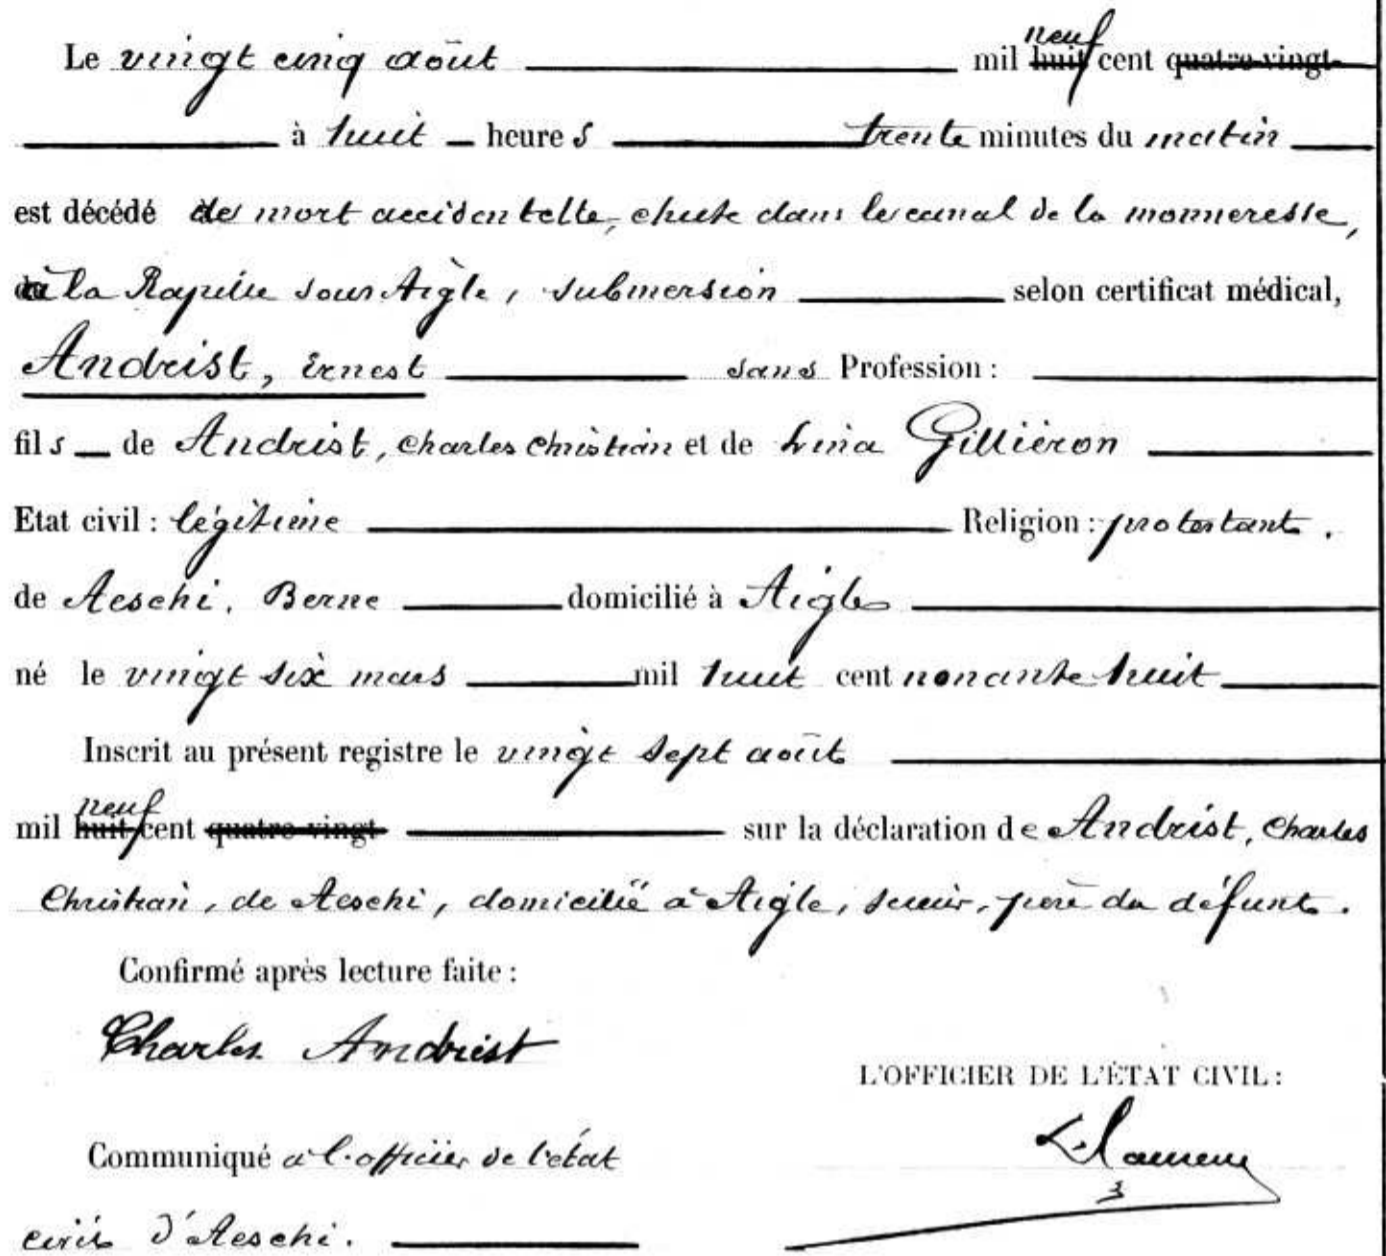 Le vingt cinq août mil huit neuf cent quatre-vingt-
à huit heures trente minutes du matin
est décédé de mort accidentelle, chute dans le canal de la monneresse,
à la Rapille sous Aigle, submersion selon certificat médical,
Andrist, Ernest sans Profession :
fils de Andrist, Charles Christian et de Lina Gilliéron
Etat civil : légitime Religion : protestante.
de Aeschi, Berne domicilié à Aigle
né le vingt six mars mil huit cent nonante huit
Inscrit au présent registre le vingt sept août
mil huit neuf cent quatre-vingt- sur la déclaration de Andrist, Charles
Christian, de Aeschi, domicilié à Aigle, père du défunt.
Confirmé après lecture faite :
Charles Andrist
L'OFFICIER DE L'ÉTAT CIVIL :
Communiqué à l'officier de l'état
civil d'Aeschi.